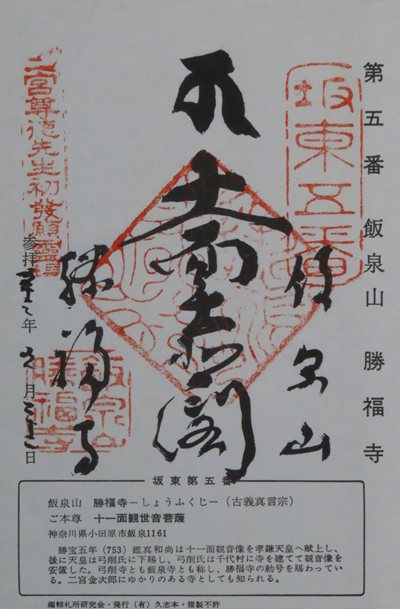 第五番 飯泉山 勝福寺
坂東五番
飯泉山
勝福寺
二宮尊徳先生初發願靈場
参拝 年 月 日
飯泉山
勝福寺
坂東第五番
飯泉山 勝福寺－しょうふくじ－(古義真言宗)
ご本尊 十一面観世音菩薩
神奈川県小田原市飯泉1161
勝宝五年(753)鑑真和尚は十一面観音像を孝謙天皇へ献上し、
後に天皇は弓削氏に下賜し、弓削氏は千代村に寺を建てて観音像を
安置した。弓削寺とも飯泉寺とも称し、勝福寺の勅号を賜わってい
る。二宮金次郎にゆかりのある寺としても知られる。
編輯札所研究会・発行(有)久志本・複製不許